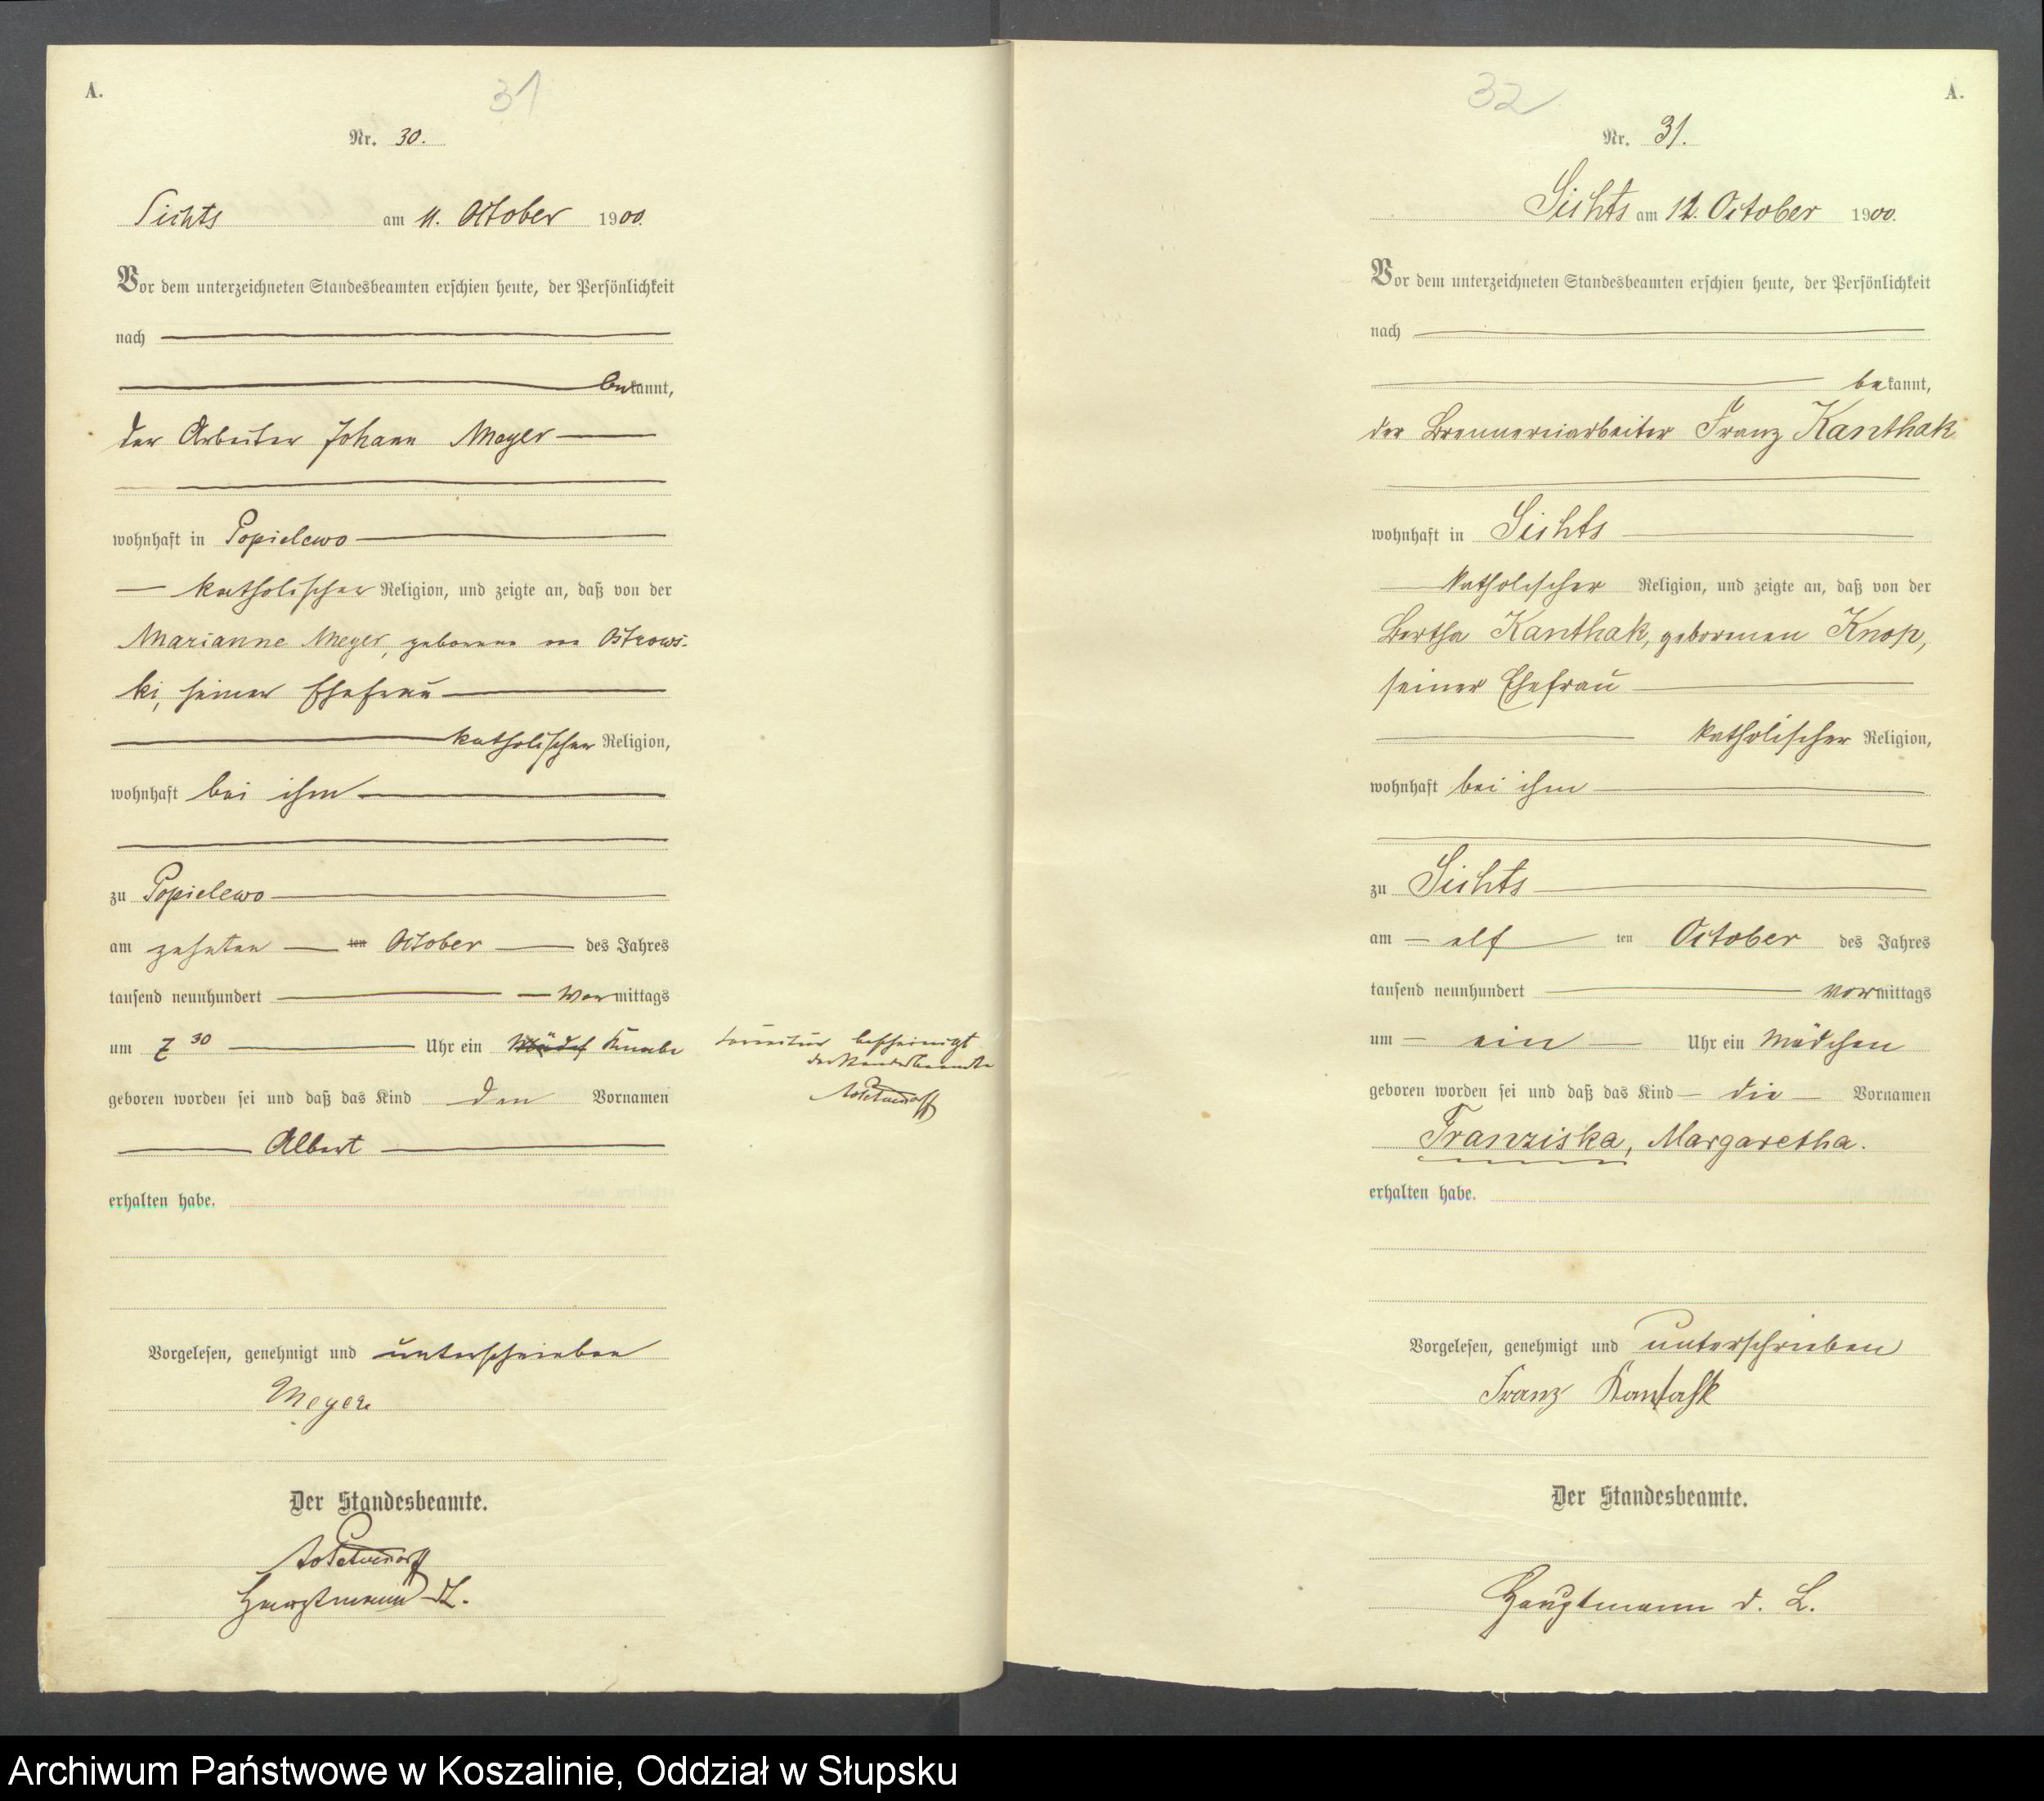 A.
31
Nr. 30.
Sichts am 11. October 1900.
Vor dem unterzeichneten Standesbeamten erschien heute, der Persönlichkeit
nach
bekannt,
der Arbeiter Johann Meyer
wohnhaft in Popielewo
katholischer Religion, und zeigte an, daß von der
Marianne Meyer, geborene Ostrows-
ki, seiner Ehefrau
katholischer Religion,
wohnhaft bei ihm
zu Popielewo
am zehnten ten October des Jahres
tausend neunhundert Vormittags
um 7 30 Uhr ein Mädch Knabe
geboren worden sei und daß das Kind den Vornamen
Albert
erhalten habe.
Vorgelesen, genehmigt und unterschrieben
Meyer
Der Standesbeamte.
Hauptmann d. L.
bescheinigt
der Standesbeamte
A.
32
Nr. 31.
Sichts am 12. October 1900.
Vor dem unterzeichneten Standesbeamten erschien heute, der Persönlichkeit
nach
bekannt,
der Brennereiarbeiter Franz Kanthak
wohnhaft in Sichts
katholischer Religion, und zeigte an, daß von der
Bertha Kanthak, geborenen Knop,
seiner Ehefrau
katholischer Religion,
wohnhaft bei ihm
zu Sichts
am elf ten October des Jahres
tausend neunhundert vormittags
um ein Uhr ein Mädchen
geboren worden sei und daß das Kind die Vornamen
Franziska, Margaretha.
erhalten habe.
Vorgelesen, genehmigt und unterschrieben
Franz Kantahk
Der Standesbeamte.
Hauptmann d. L.
Archiwum Państwowe w Koszalinie, Oddział w Słupsku